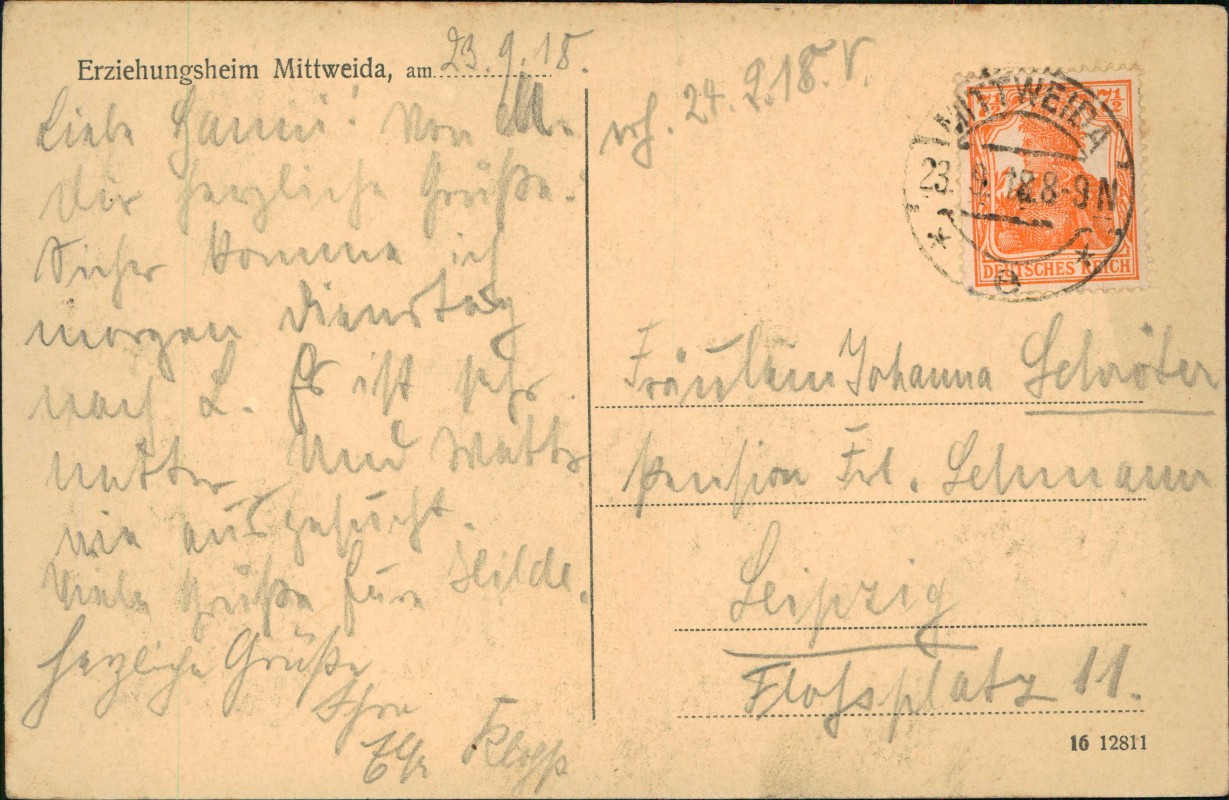 Erziehungsheim Mittweida, am 23.9.18.
Liebe Hanni! Von
dir herzliche Grüße.
Sicher komme ich
morgen Dienstag
nach L. Es ist sehr
nettes Und Wetter
wie ausgesucht.
Viele Grüße Eure Hilde.
Herzliche Grüße
Ihre
24.9.18.
MITTWEIDA
23.9.18.8-9N
* c *
7½ 7½
DEUTSCHES REICH
Fräulein Johanna Schröter
Pension Frl. Lehmann
Leipzig
Flossplatz 11.
16 12811